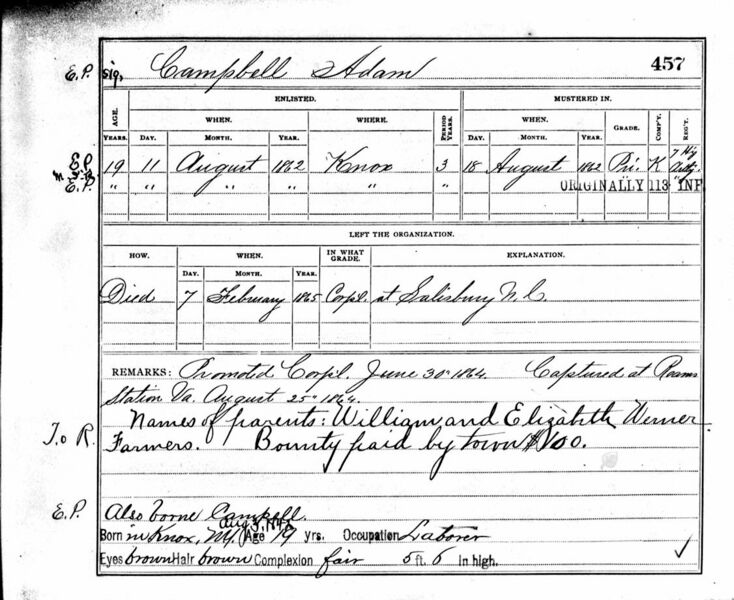 E.P. sig. Campbell Adam 457
ENLISTED. MUSTERED IN.
AGE. WHEN. WHERE. PERIOD WHEN. GRADE. COMP'Y. REG'T.
YEARS. DAY. MONTH. YEAR. YEARS. DAY. MONTH. YEAR.
E.P. 19 11 August 1862 Knox 3 18 August 1862 Pri. K 7 Hvy Arty.
E.P. " " " " " " ORIGINALLY 113 " INF
LEFT THE ORGANIZATION.
HOW. WHEN. IN WHAT GRADE. EXPLANATION.
DAY. MONTH. YEAR.
Died 7 February 1865 Corpl. at Salisbury N.C.
REMARKS: Promoted Corpl. June 30" 1864. Captured at Reams
Station Va. August 25" 1864.
Names of parents: William and Elizabeth Werner
T.o R. Farmers. Bounty paid by town $100.
E.P. Also borne Campell.
Aug 3, 1842
Born in Knox, NY. Age 19 yrs. Occupation Laborer
Eyes brown Hair brown Complexion fair 5 ft. 6 In high.